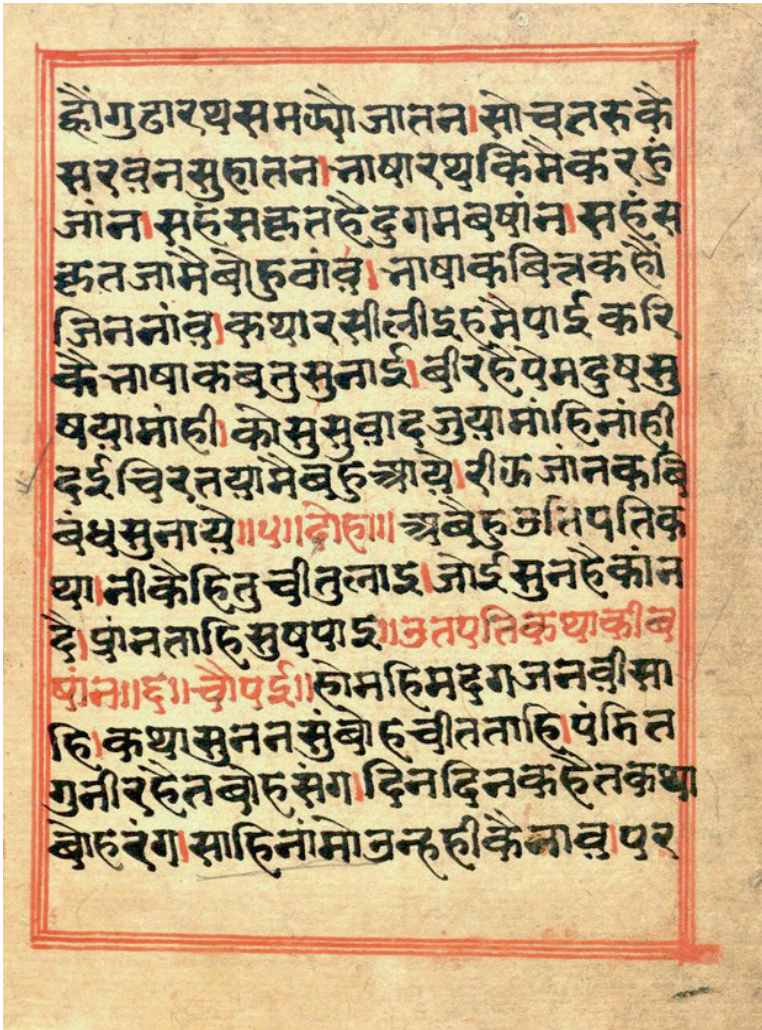 ह्वौंगुढारथसमझ्यौजातन।सोचतरुकै
सरवनसुहातन।भाषारथकिमैकरहुं
जांन।सहंसक्रतहैदुगमबषांन।सहंस
क्रतजामैबौहुवांव।भाषाकबित्नकहौं
जिननांव।कथारसीलीइहमैपाईकरि
कैभाषाकबतुसुनाई।बीरहैपेमदुषसु
षयामांही।कोसुसुवादजुयामांहिनांही
दईचिरतयामैबहुआये।रीऊजांनकबि
बंधसुनाये॥५॥दोहा॥अबैहउतिपतिक
था।नीकैहितुचीतुलाइ।जोईसुनहैकांन
दै।प्रांनताहिसुषपाइ॥उतपतिकथाकीब
षांन॥६॥चौपई॥होमहिमदगजनवीसा
हि।कथासुननसुंबोहचीतताहि।पंडित
गुनीरहैतबोहसंग।दिनदिनकहैतकथा
बोहरंग।साहिनांमोउन्हहीकैभाव।पर